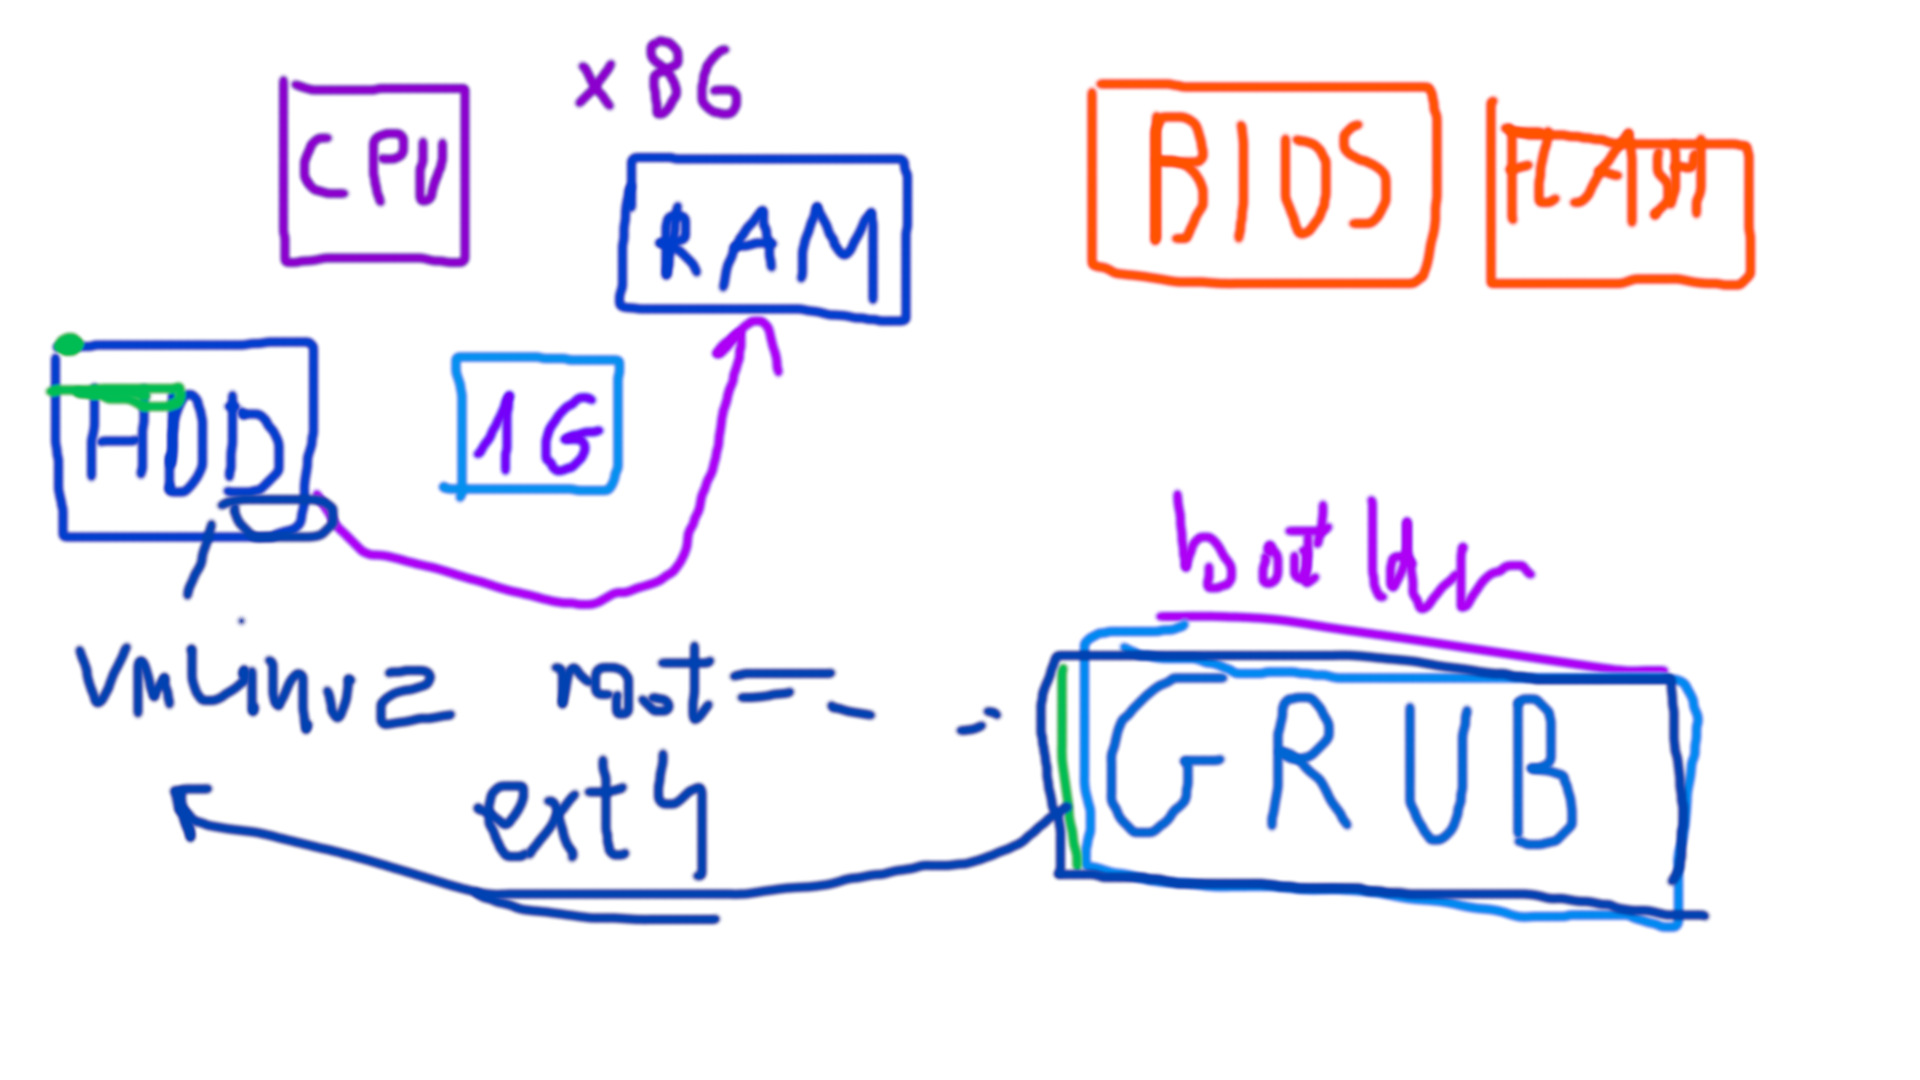 x86
CPU
BIOS
FLASH
RAM
HDD
1G
bootldr
vmlinuz root=
GRUB
ext4